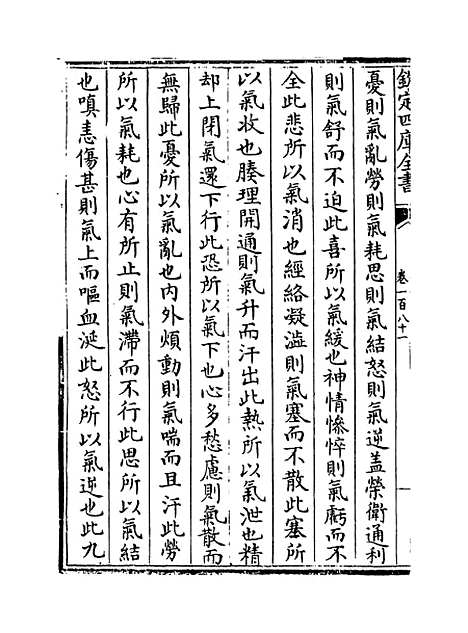 欽定四庫全書
卷一百八十一
憂則氣亂勞則氣耗思則氣結怒則氣逆盖榮衛通利
則氣舒而不迫此喜所以氣緩也神情慘悴則氣虧而不
全此悲所以氣消也經絡凝澁則氣塞而不散此塞所
以氣收也腠理開通則氣升而汗出此熱所以氣泄也精
却上閉氣還下行此恐所以氣下也心多愁慮則氣散而
無歸此憂所以氣亂也内外煩動則氣喘而且汗此勞
所以氣耗也心有所止則氣滯而不行此思所以氣結
也嗔恚傷甚則氣上而嘔血涎此怒所以氣逆也此九